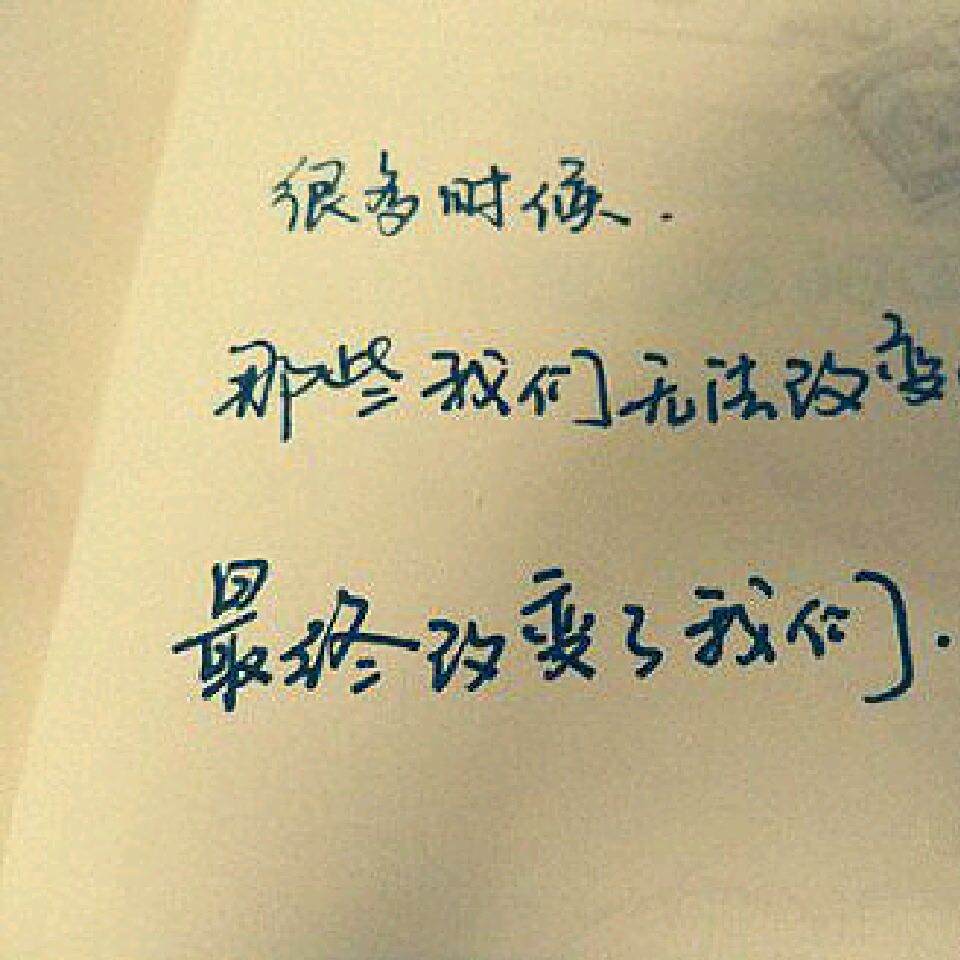 很多时候.
那些我们无法改变
最终改变了我们.